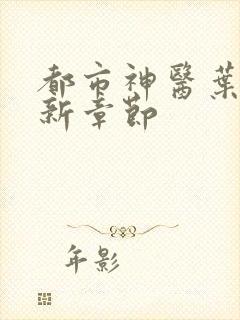 都市神醫葉
新章節
年影